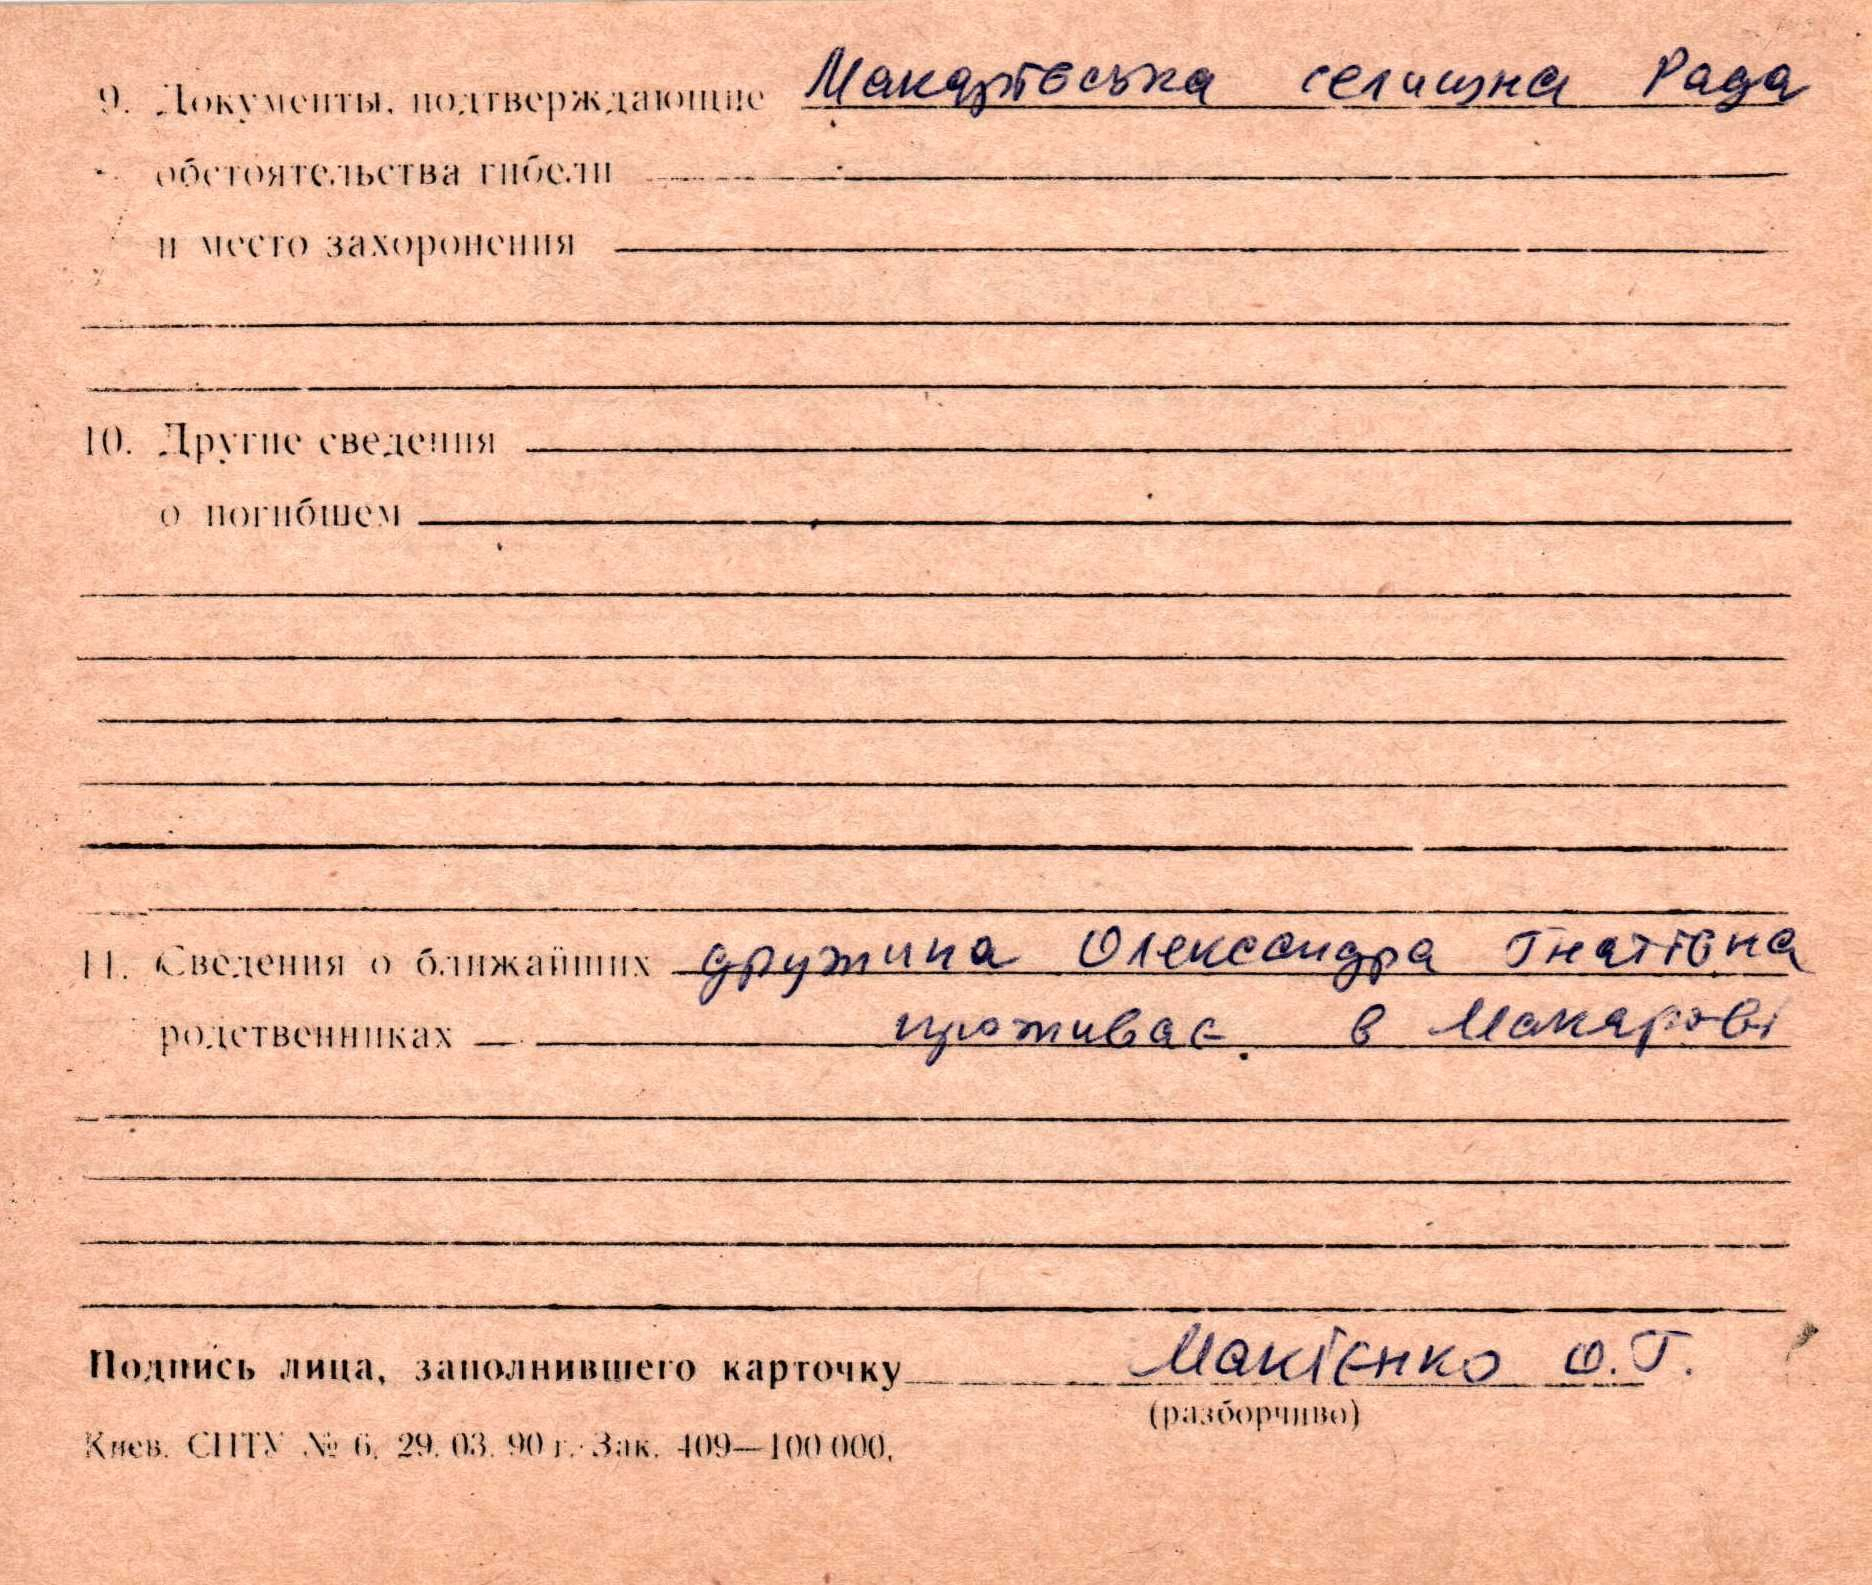 9. Документы, подтверждающие Макарівська селищна Рада
обстоятельства гибели
и место захоронения
10. Другие сведения
о погибшем
11. Сведения о ближайших дружина Олександра Гнатівна
родственниках проживає в Макарові
Подпись лица, заполнившего карточку Макієнко О.Г.
(разборчиво)
Киев. СПТУ № 6. 29. 03. 90 г. Зак. 409—100 000.